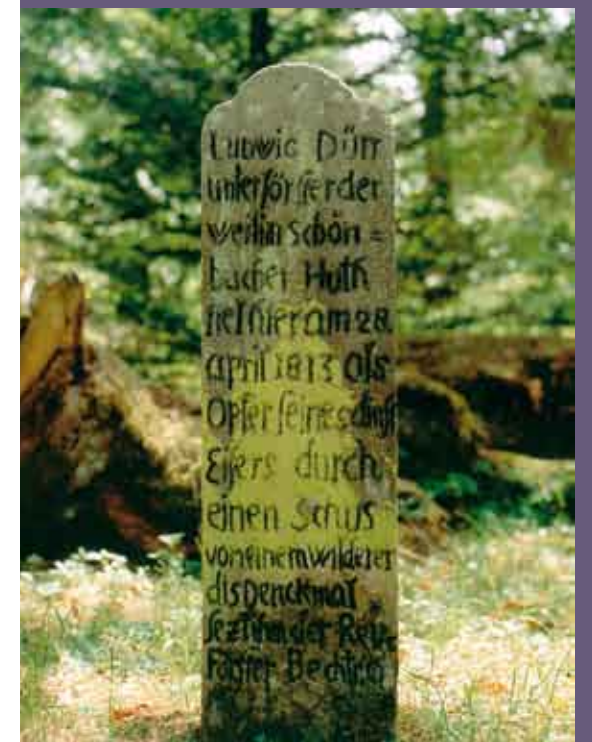 Ludwig Dürr
unterförster der
weil in schön =
bucher Huth
fiel hier am 28.
april 1813 als
Opfer seines dinst
Eifers durch
einen Schus
von einem wilderer
dis Denckmal
sezt ihm der Rev.
Förster Bechtner